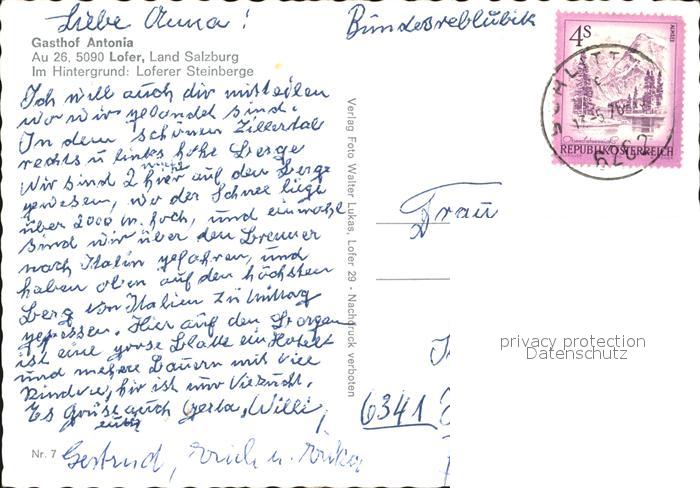 Liebe Anna!
Bundesreblubik
Gasthof Antonia
Au 26, 5090 Lofer, Land Salzburg
Im Hintergrund: Loferer Steinberge
Ich will auch dir mitteilen
wo wir gelandet sind.
In dem schönen Zillertal
rechts u links hohe Berge
Wir sind 2 hier auf den Berge
gewesen, wo der Schnee liegt
über 2000 m. hoch, und einmahl
sind wir über den Brenner
nach Italin gefahren, und
haben oben auf den höchsten
Berg von Italien zu Mittag
gegessen. Hier auf den Bergen
ist eine grose Blatte ein Hotell
und mehere Bauern mit viel
Rindvie, hir ist nur Viezucht.
Es grüst auch Gerta, Willi,
Gertrud, Erich u. Erika
Nr. 7
Verlag Foto Walter Lukas, Lofer 29 - Nachdruck verboten
4S
REPUBLIK ÖSTERREICH
SCHLITT
6262
Frau
privacy protection
Datenschutz
6341